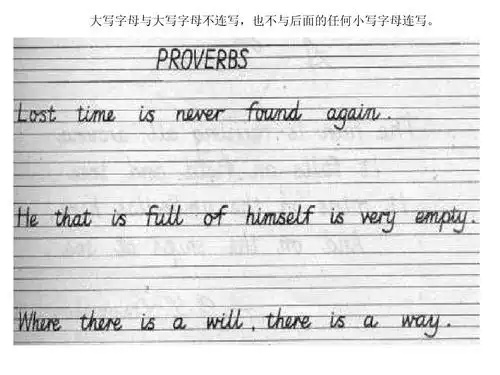 大写字母与大写字母不连写，也不与后面的任何小写字母连写。
PROVERBS
Lost time is never found again.
He that is full of himself is very empty.
Where there is a will, there is a way.